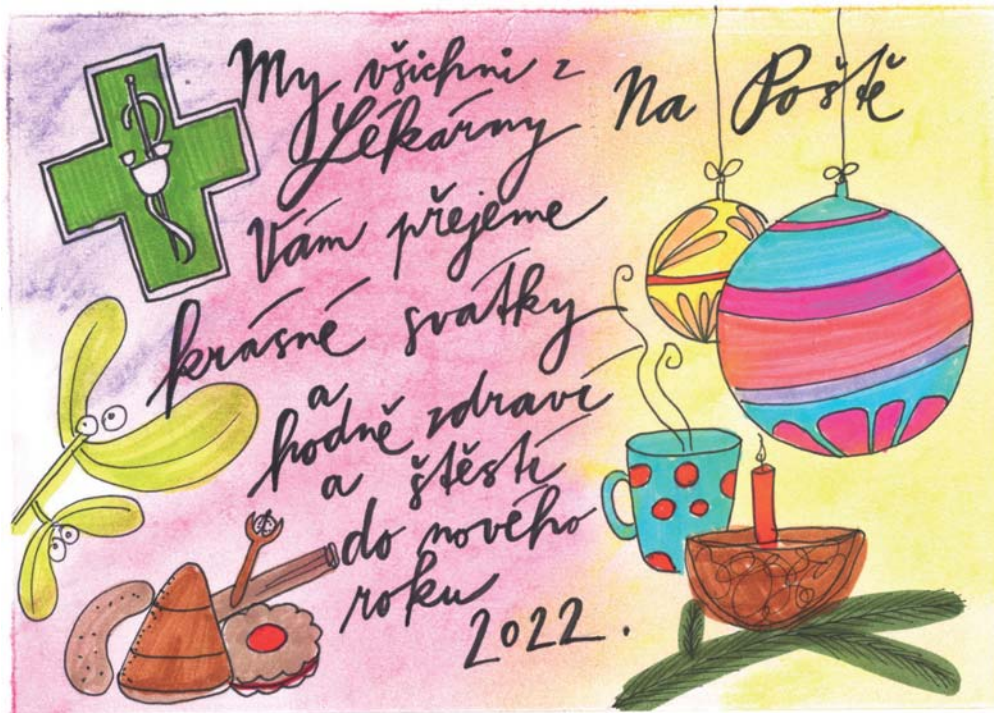 My všichni z
Lékárny Na Poště
Vám přejeme
krásné svátky
a
hodně zdraví
a štěstí
do nového
roku
2022.